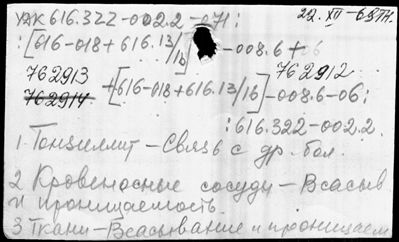 УДК 616.322-002.2-071:
22.XII-69 тп.
:[616-018+616.13/16]-008.6+
762913 +[616-018+616.13/16]-008.6-06: 762912
762914
:616.322-002.2.
1. Тонзиллит - Связь с др. бол.
2 Кровеносные сосуды - Всасыв.
и проницаемость.
3 Ткани - Всасывание и проницаем